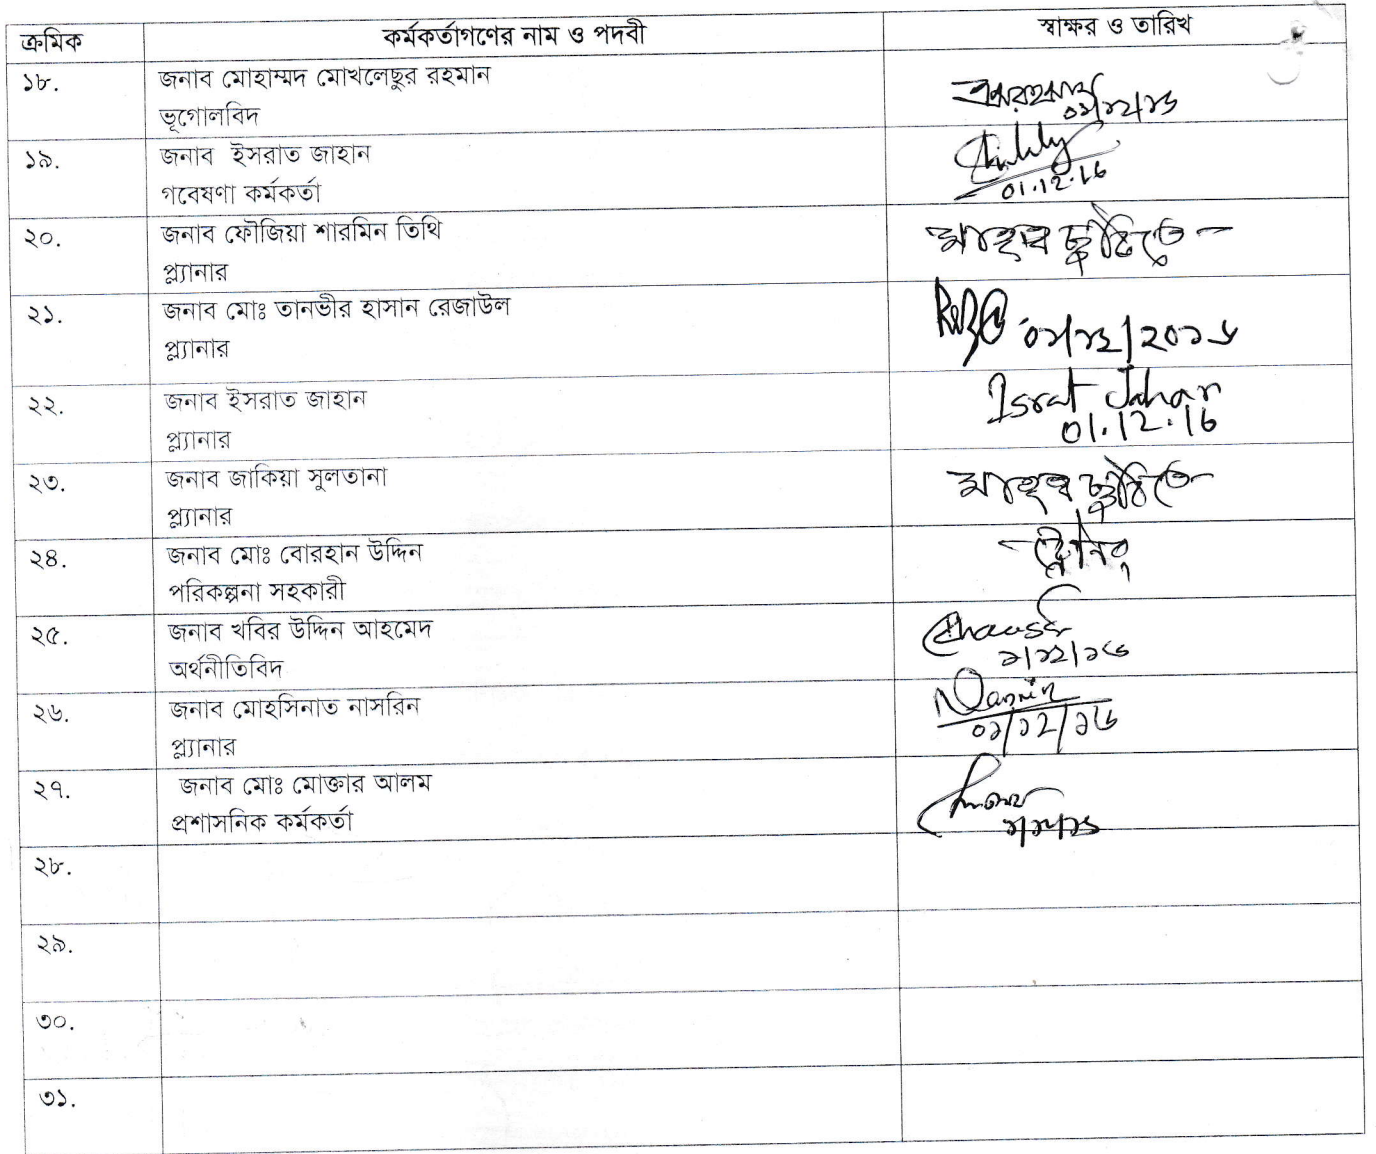 ক্রমিক কর্মকর্তাগণের নাম ও পদবী স্বাক্ষর ও তারিখ
১৮. জনাব মোহাম্মদ মোখলেছুর রহমান
ভূগোলবিদ
০১/১২/১৬
১৯. জনাব ইসরাত জাহান
গবেষণা কর্মকর্তা
01.12.16
২০. জনাব ফৌজিয়া শারমিন তিথি
প্ল্যানার
মাতৃত্ব ছুটিতে
২১. জনাব মোঃ তানভীর হাসান রেজাউল
প্ল্যানার
০১/১২/২০১৬
২২. জনাব ইসরাত জাহান
প্ল্যানার
Israt Jahan
01.12.16
২৩. জনাব জাকিয়া সুলতানা
প্ল্যানার
মাতৃত্ব ছুটিতে
২৪. জনাব মোঃ বোরহান উদ্দিন
পরিকল্পনা সহকারী
২৫. জনাব খবির উদ্দিন আহমেদ
অর্থনীতিবিদ
১/১২/১৬
২৬. জনাব মোহসিনাত নাসরিন
প্ল্যানার
Nasrin
০১/১২/১৬
২৭. জনাব মোঃ মোক্তার আলম
প্রশাসনিক কর্মকর্তা
১/১২/১৬
২৮.
২৯.
৩০.
৩১.